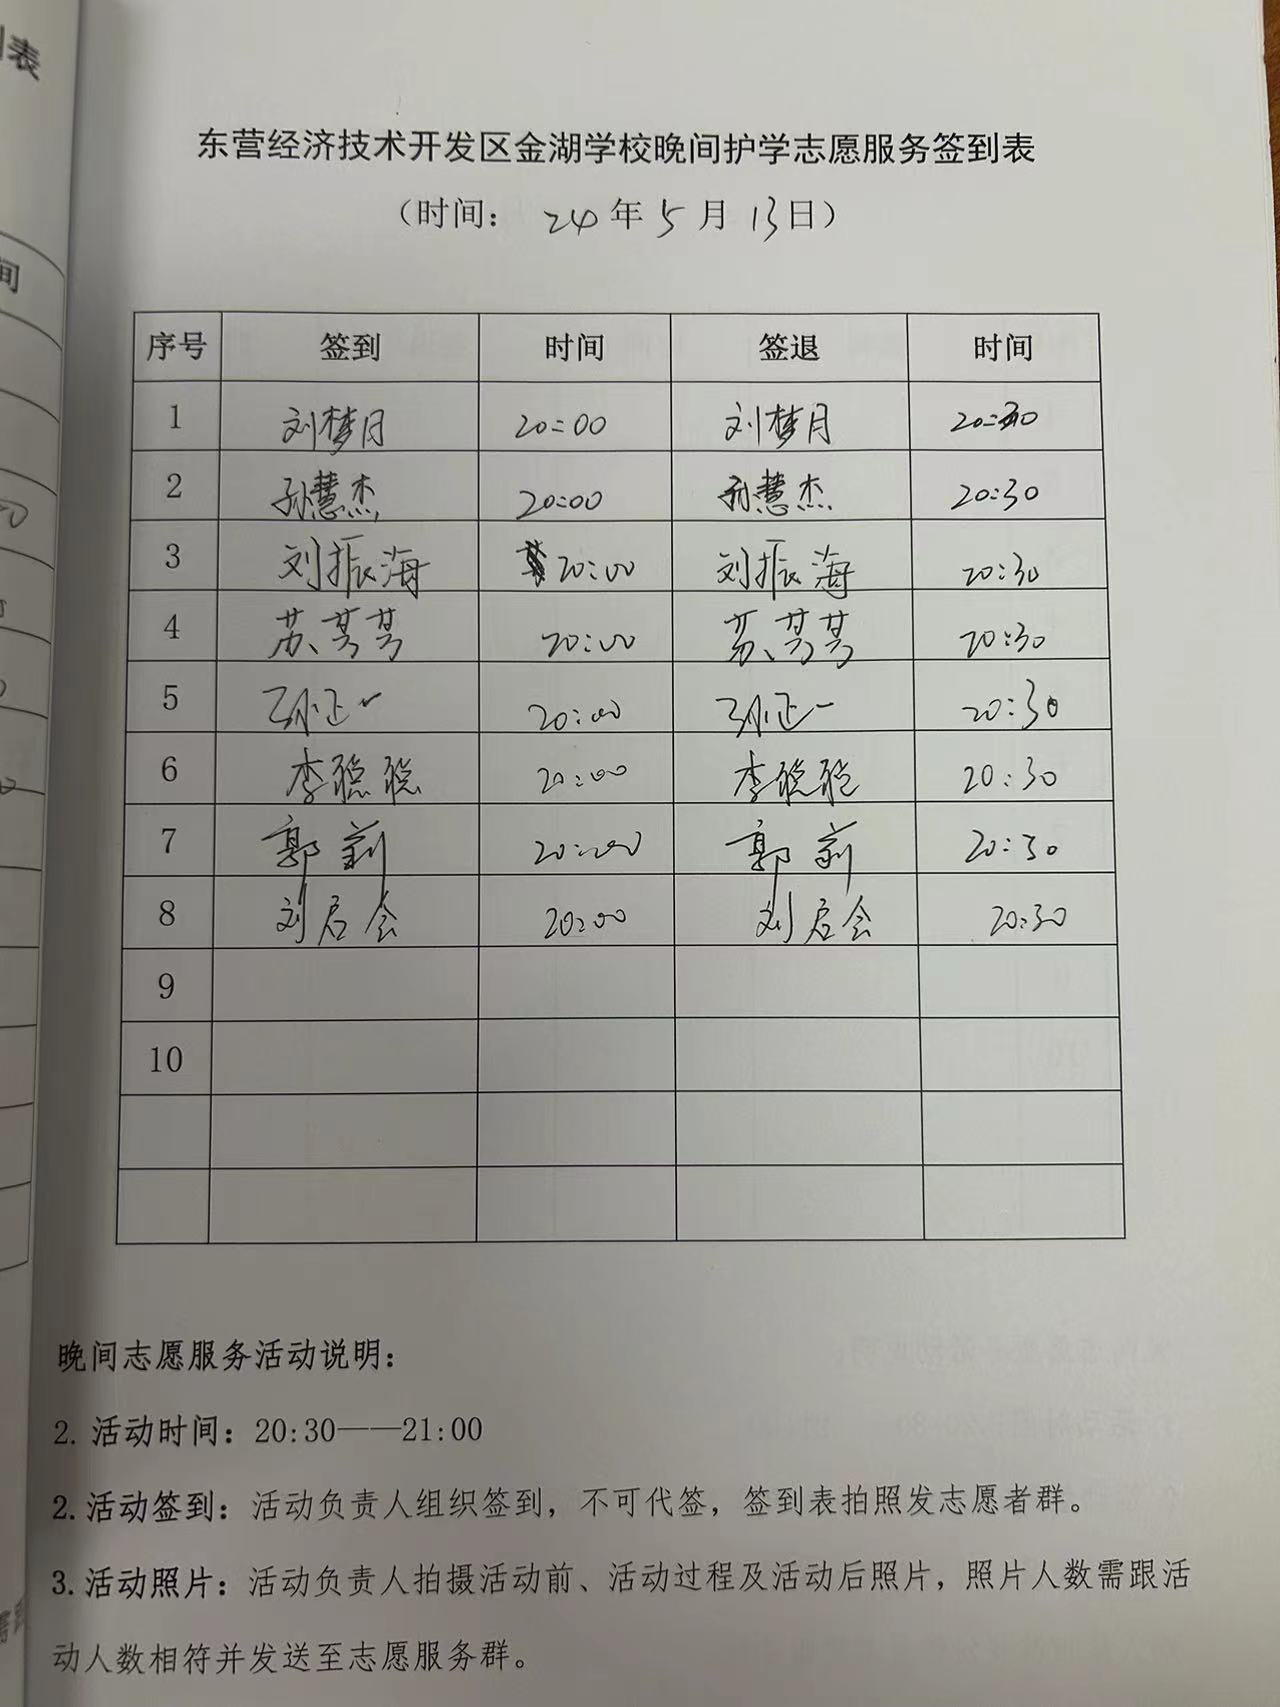 东营经济技术开发区金湖学校晚间护学志愿服务签到表
（时间： 24 年 5 月 13日）
序号 签到 时间 签退 时间
1 刘梦月 20:00 刘梦月 20:30
2 孙慧杰 20:00 孙慧杰 20:30
3 刘振海 20:00 刘振海 20:30
4 苏芳芳 20:00 苏芳芳 20:30
5 孙正一 20:00 孙正一 20:30
6 李聪聪 20:00 李聪聪 20:30
7 郭莉 20:00 郭莉 20:30
8 刘启会 20:00 刘启会 20:30
9
10
晚间志愿服务活动说明：
2. 活动时间：20:30——21:00
2. 活动签到：活动负责人组织签到，不可代签，签到表拍照发志愿者群。
3. 活动照片：活动负责人拍摄活动前、活动过程及活动后照片，照片人数需跟活
动人数相符并发送至志愿服务群。